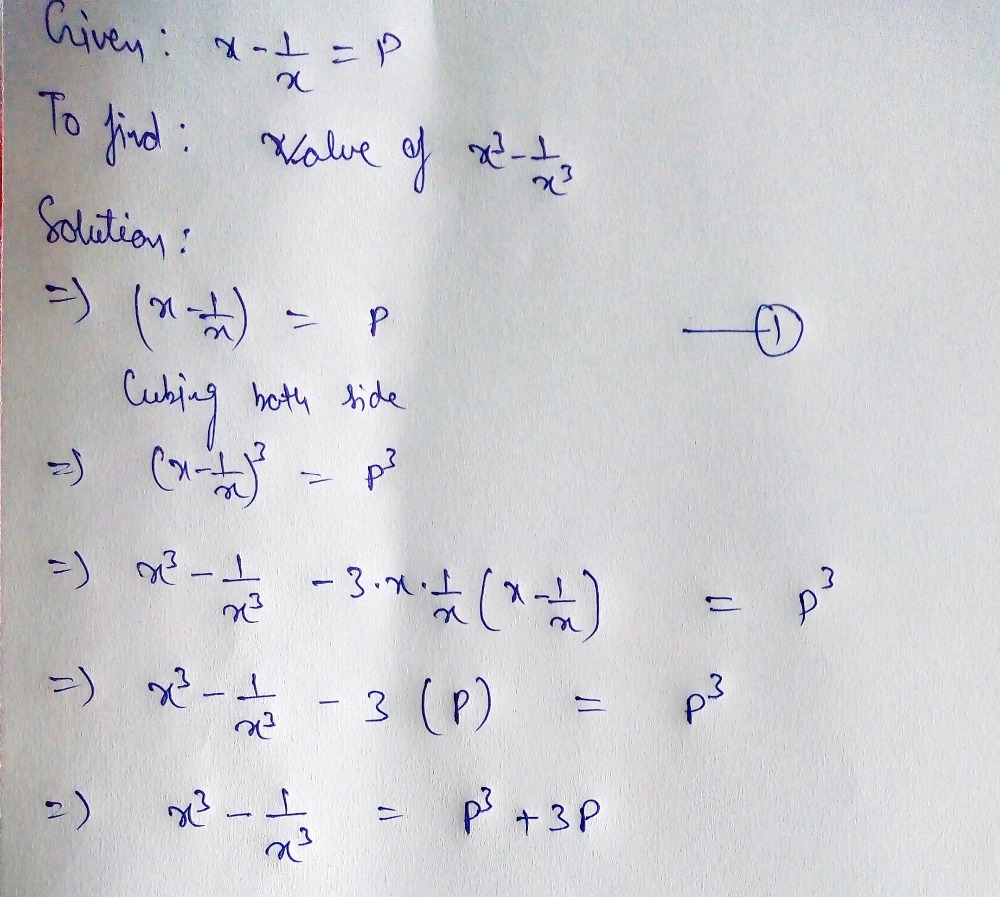 Given : x - 1/x = P
To find : Value of x³ - 1/x³
Solution :
=) (x - 1/x) = P —①
Cubing both side
=) (x - 1/x)³ = P³
=) x³ - 1/x³ - 3·x·1/x (x - 1/x) = P³
=) x³ - 1/x³ - 3 (P) = P³
=) x³ - 1/x³ = P³ + 3P